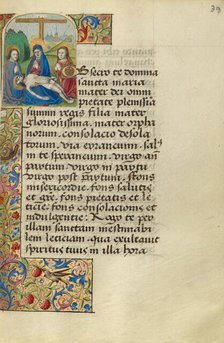 39
Obsecro te domina
sancta maria
mater dei omni
pietate plenissia
summi regis filia mater
gloriosissima mater orpha
norum. consolacio desola
torum. via errancium. sal⁹
in te sperancium. virgo an̄
partum. virgo in partu
virgo post partum. fons
misericordie. fons salutis
et grē. fons pietatis et le
ticie. fons consolacionis et
indulgentie. Rogo te per
illam sanctam inestimabi
lem leticiam. qua exultauit
spiritus tuus in illa hora